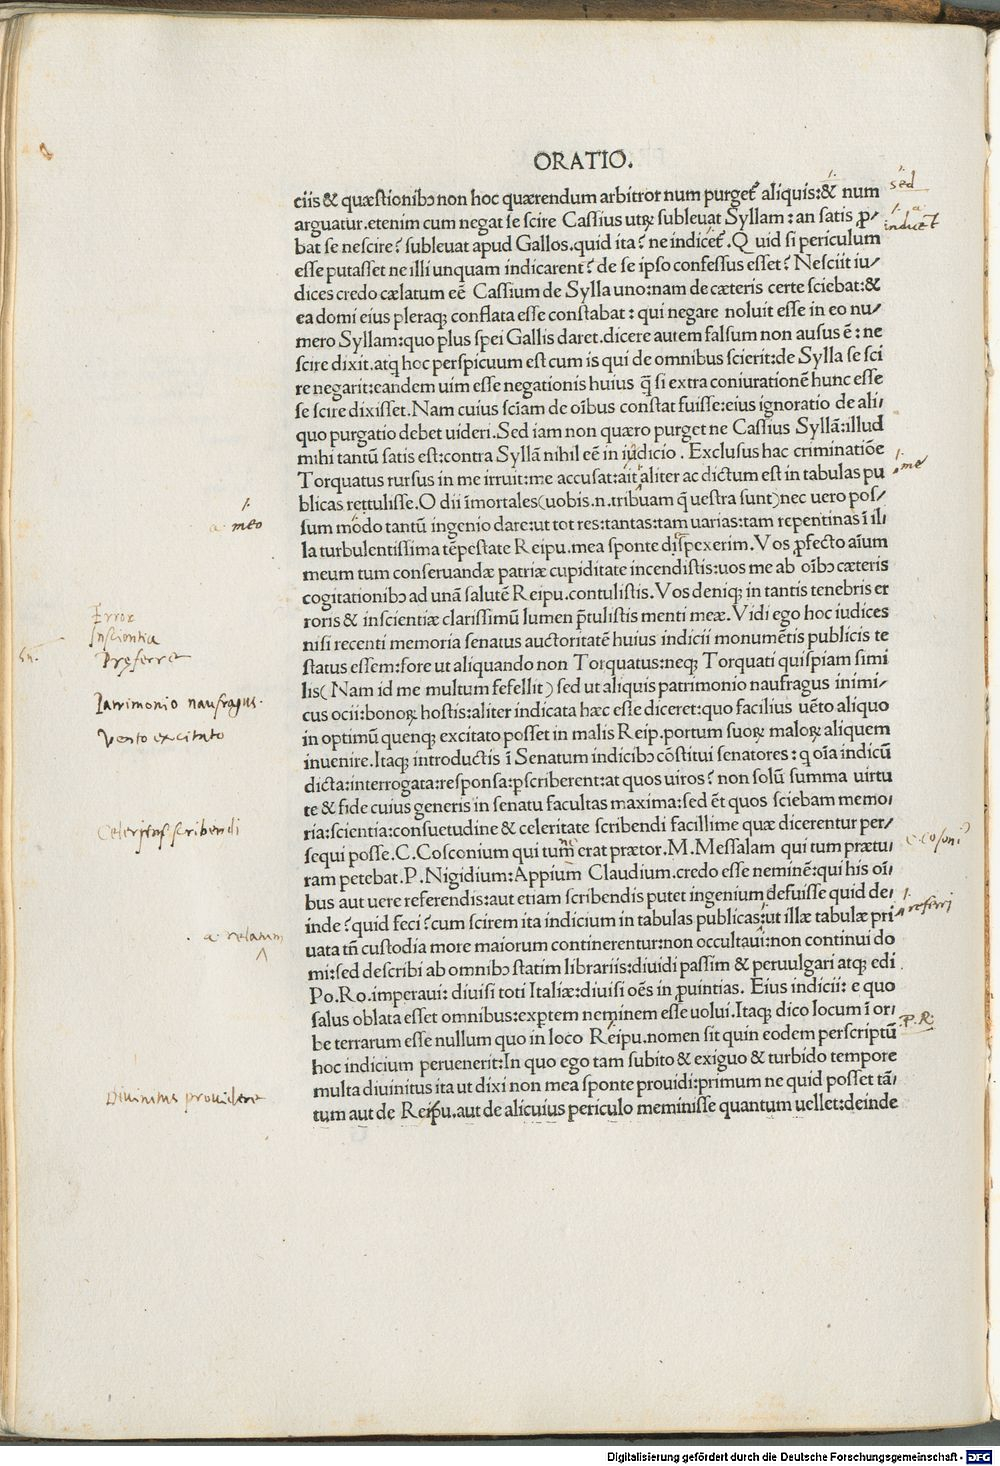 ORATIO.
ciis & quæstionibꝰ non hoc quærendum arbitror num purget᷑ aliquis:& num
arguatur.etenim cum negat se scire Cassius utꝝ subleuat Syllam: an satis ꝓ/
bat se nescire? subleuat apud Gallos.quid ita? ne indicet᷑. Quid si periculum
esse putasset ne illi unquam indicarent? de se ipso confessus esset? Nesciit iu/
dices credo cælatum eē Cassium de Sylla uno:nam de cæteris certe sciebat:&
ea domi eius pleraqꝫ conflata esse constabat: qui negare noluit esse in eo nu/
mero Syllam:quo plus spei Gallis daret.dicere autem falsum non ausus ē: ne
scire dixit.atqꝫ hoc perspicuum est cum is qui de omnibus scierit:de Sylla se sci
re negarit:eandem uim esse negationis huius q̄ si extra coniurationē hunc esse
se scire dixisset. Nam cuius scīam de oībus constat fuisse:eius ignoratio de ali/
quo purgatio debet uideri.Sed iam non quæro purget ne Cassius Syllā:illud
mihi tantū satis est:contra Syllā nihil eē in iudicio. Exclusus hac criminatiōe
Torquatus rursus in me irruit:me accusat:ait aliter ac dictum est in tabulas pu
blicas rettulisse.O dii īmortales(uobis.n.tribuam q̄ uestra sunt)nec uero pos/
sum modo tantū ingenio dare:ut tot res:tantas:tam uarias:tam repentinas ī il/
la turbulentissima tēpestate Reipu.mea sponte dispexerim.Vos ꝓfecto aīum
meum tum conseruandæ patriæ cupiditate incendistis:uos me ab oībꝰ cæteris
cogitationibꝰ ad unā salutē Reipu.contulistis.Vos deniqꝫ in tantis tenebris er
roris & inscientiæ clarissimū lumen p̄tulistis menti meæ.Vidi ego hoc iudices
nisi recenti memoria senatus auctoritatē huius indicii monumētis publicis te
status essem:fore ut aliquando non Torquatus:neqꝫ Torquati quispiam simi
lis(Nam id me multum fefellit) sed ut aliquis patrimonio naufragus inimi/
cus ocii:bonoꝝ hostis:aliter indicata hæc esse diceret:quo facilius uēto aliquo
in optimū quenqꝫ excitato posset in malis Reip.portum suoꝝ maloꝝ aliquem
inuenire.Itaqꝫ introductis ī Senatum indicibꝰ cōstitui senatores: q oīa indicū
dicta:interrogata:responsa:ꝑscriberent:at quos uiros? non solū summa uirtu
te & fide cuius generis in senatu facultas maxima:sed ēt quos sciebam memo/
ria:scientia:consuetudine & celeritate scribendi facillime quæ dicerentur per/
sequi posse.C.Cosconium qui tum erat prætor.M.Messalam qui tum prætu/
ram petebat.P.Nigidium:Appium Claudium.credo esse neminē:qui his oī/
bus aut uere referendis:aut etiam scribendis putet ingenium defuisse quid de/
inde? quid feci? cum scirem ita indicium in tabulas publicas:ut illæ tabulæ pri
uata tn̄ custodia more maiorum continerentur:non occultaui:non continui do
mi:sed describi ab omnibꝰ statim librariis:diuidi passim & peruulgari atqꝫ edi
Po.Ro.imperaui: diuisi toti Italiæ:diuisi oēs in ꝓuintias. Eius indicii: e quo
salus oblata esset omnibus:exꝑtem neminem esse uolui.Itaqꝫ dico locum ī or/
be terrarum esse nullum quo in loco Reipu.nomen sit quin eodem perscriptū
hoc indicium peruenerit:In quo ego tam subito & exiguo & turbido tempore
multa diuinitus ita ut dixi non mea sponte prouidi:primum ne quid posset tā/
tum aut de Reipu.aut de alicuius periculo meminisse quantum uellet:deinde
sed
l. a.
induet
l. me
l.
a. meo
Error
Inscientia
Pręferre
Patrimonio naufragus.
Vento excitato
Celeritas scribendi
C. Cosconi
l. referri
a. relatum
P. R.
Diuinitus prouidere
Digitalisierung gefördert durch die Deutsche Forschungsgemeinschaft - DFG